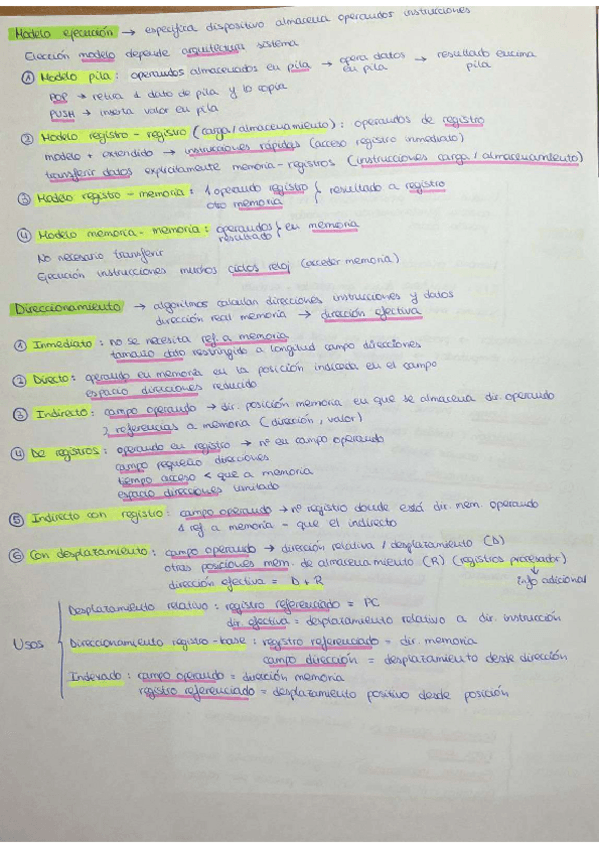 Modelo ejecución → especifica dispositivo almacena operandos instrucciones
Elección modelo depende arquitectura sistema
① Modelo pila: operandos almacenados en pila → opera datos en pila → resultado encima pila
POP → retira 1 dato de pila y lo copia
PUSH → inserta valor en pila
② Modelo registro - registro (carga/almacenamiento): operandos de registro
modelo + extendido → instrucciones rápidas (acceso registro inmediato)
transferir datos explícitamente memoria - registros (instrucciones carga/almacenamiento)
③ Modelo registro - memoria: 1 operando registro } resultado a registro
otro memoria
④ Modelo memoria - memoria: operandos } en memoria
resultado
No necesario transferir
Ejecución instrucciones muchos ciclos reloj (acceder memoria)
Direccionamiento → algoritmos calculan direcciones instrucciones y datos
dirección real memoria → dirección efectiva
① Inmediato: no se necesita ref. a memoria
tamaño dato restringido a longitud campo direcciones
② Directo: operando en memoria en la posición indicada en el campo
espacio direcciones reducido
③ Indirecto: campo operando → dir. posición memoria en que se almacena dir. operando
2 referencias a memoria (dirección, valor)
④ De registros: operando en registro → nº en campo operando
campo pequeño direcciones
tiempo acceso < que a memoria
espacio direcciones limitado
⑤ Indirecto con registro: campo operando → nº registro donde está dir. mem. operando
1 ref a memoria - que el indirecto
⑥ Con desplazamiento: campo operando → dirección relativa / desplazamiento (D)
otras posiciones mem. de almacenamiento (R) (registros procesador)
dirección efectiva = D + R
↓ Info adicional
Usos
Desplazamiento relativo: registro referenciado = PC
dir. efectiva = desplazamiento relativo a dir. instrucción
Direccionamiento registro-base: registro referenciado = dir. memoria
campo dirección = desplazamiento desde dirección
Indexado: campo operando = dirección memoria
registro referenciado = desplazamiento positivo desde posición